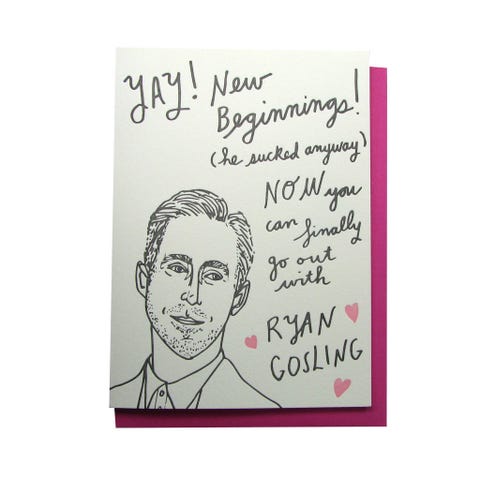 YAY! New
Beginnings!
(he sucked anyway)
NOW you
can finally
go out
with
RYAN
GOSLING